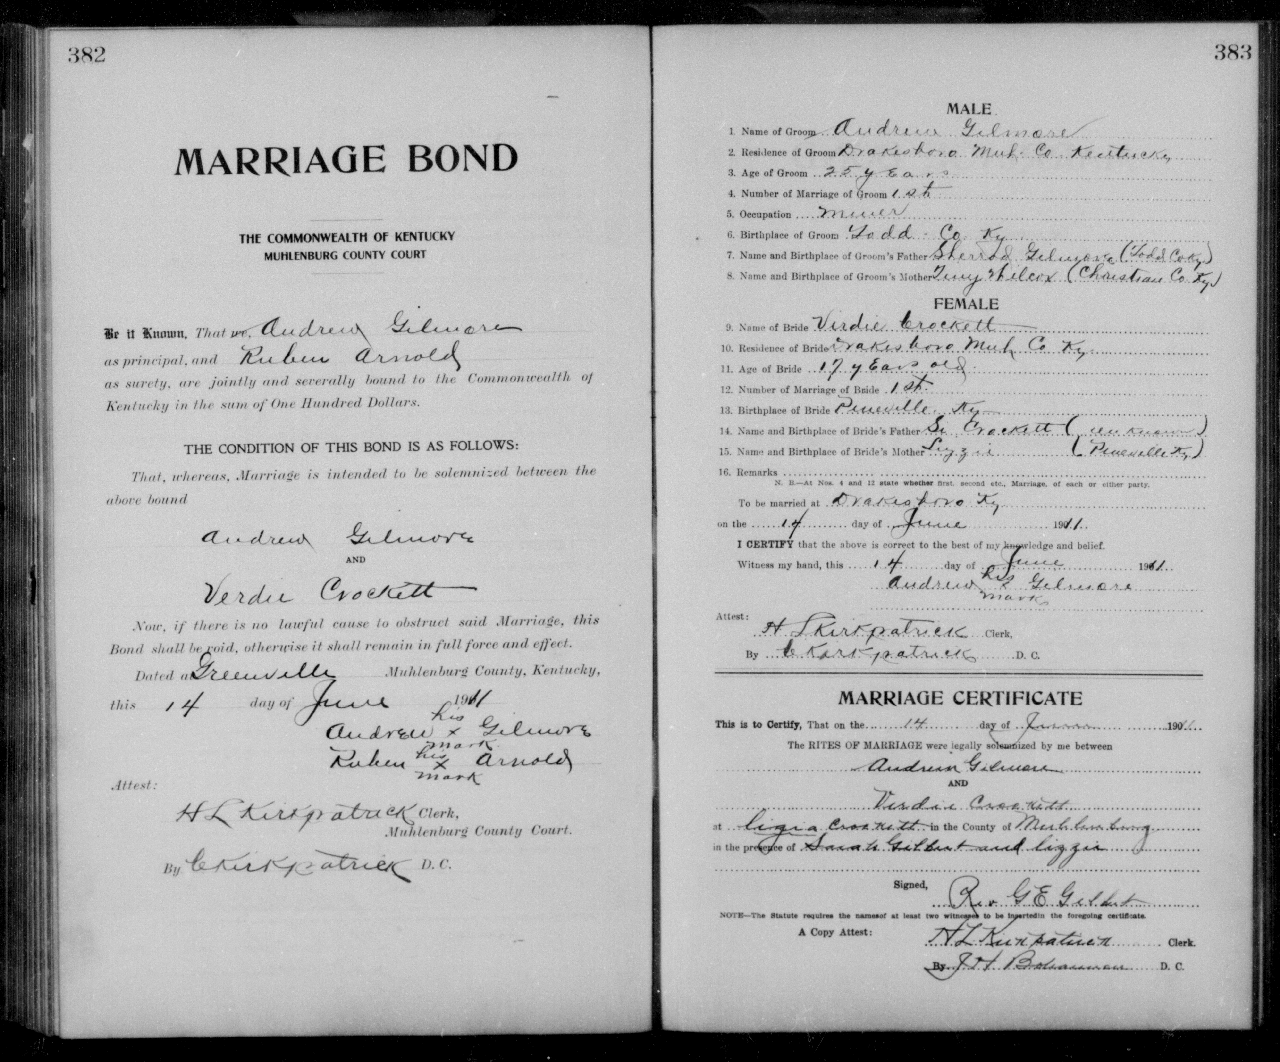 382
MARRIAGE BOND
THE COMMONWEALTH OF KENTUCKY
MUHLENBURG COUNTY COURT
Be it Known, That we, Andrew Gilmore
as principal, and Ruben Arnold
as surety, are jointly and severally bound to the Commonwealth of
Kentucky in the sum of One Hundred Dollars.
THE CONDITION OF THIS BOND IS AS FOLLOWS:
That, whereas, Marriage is intended to be solemnized between the
above bound
Andrew Gilmore
AND
Verdie Crockett
Now, if there is no lawful cause to obstruct said Marriage, this
Bond shall be void, otherwise it shall remain in full force and effect.
Dated at Greenville Muhlenburg County, Kentucky,
this 14 day of June 1911
his
Andrew x Gilmore
mark
his
Ruben x Arnold
mark
Attest:
H L Kirkpatrick Clerk,
Muhlenburg County Court.
By C Kirkpatrick D. C.
383
MALE
1. Name of Groom Andrew Gilmore
2. Residence of Groom Drakesboro Muh Co Kentucky
3. Age of Groom 25 years
4. Number of Marriage of Groom 1st
5. Occupation Miner
6. Birthplace of Groom Todd Co Ky
7. Name and Birthplace of Groom's Father Sherrod Gilmore (Todd Co Ky)
8. Name and Birthplace of Groom's Mother Wilcox (Christian Co Ky)
FEMALE
9. Name of Bride Virdie Crockett
10. Residence of Bride Drakesboro Muh Co Ky
11. Age of Bride 17 years old
12. Number of Marriage of Bride 1st
13. Birthplace of Bride Pineville Ky
14. Name and Birthplace of Bride's Father Si Crockett (unknown)
15. Name and Birthplace of Bride's Mother Lizzie (Pineville Ky)
16. Remarks
N. B.—At Nos. 4 and 12 state whether first, second etc., Marriage, of each or either party.
To be married at Drakesboro Ky
on the 14 day of June 1911.
I CERTIFY that the above is correct to the best of my knowledge and belief.
Witness my hand, this 14 day of June 1911.
his
Andrew x Gilmore
mark
Attest:
H L Kirkpatrick Clerk,
By C Kirkpatrick D. C.
MARRIAGE CERTIFICATE
This is to Certify, That on the 14 day of June 1911
The RITES OF MARRIAGE were legally solemnized by me between
Andrew Gilmore
AND
Virdie Crockett
at Crockett in the County of Muhlenburg
in the presence of Sarah Gilbert and lizzie
Signed,
Rev G E Gilbert
NOTE—The Statute requires the namesof at least two witnesses to be insertedin the foregoing certificate.
A Copy Attest: H L Kirkpatrick Clerk.
By J H Bohannon D. C.